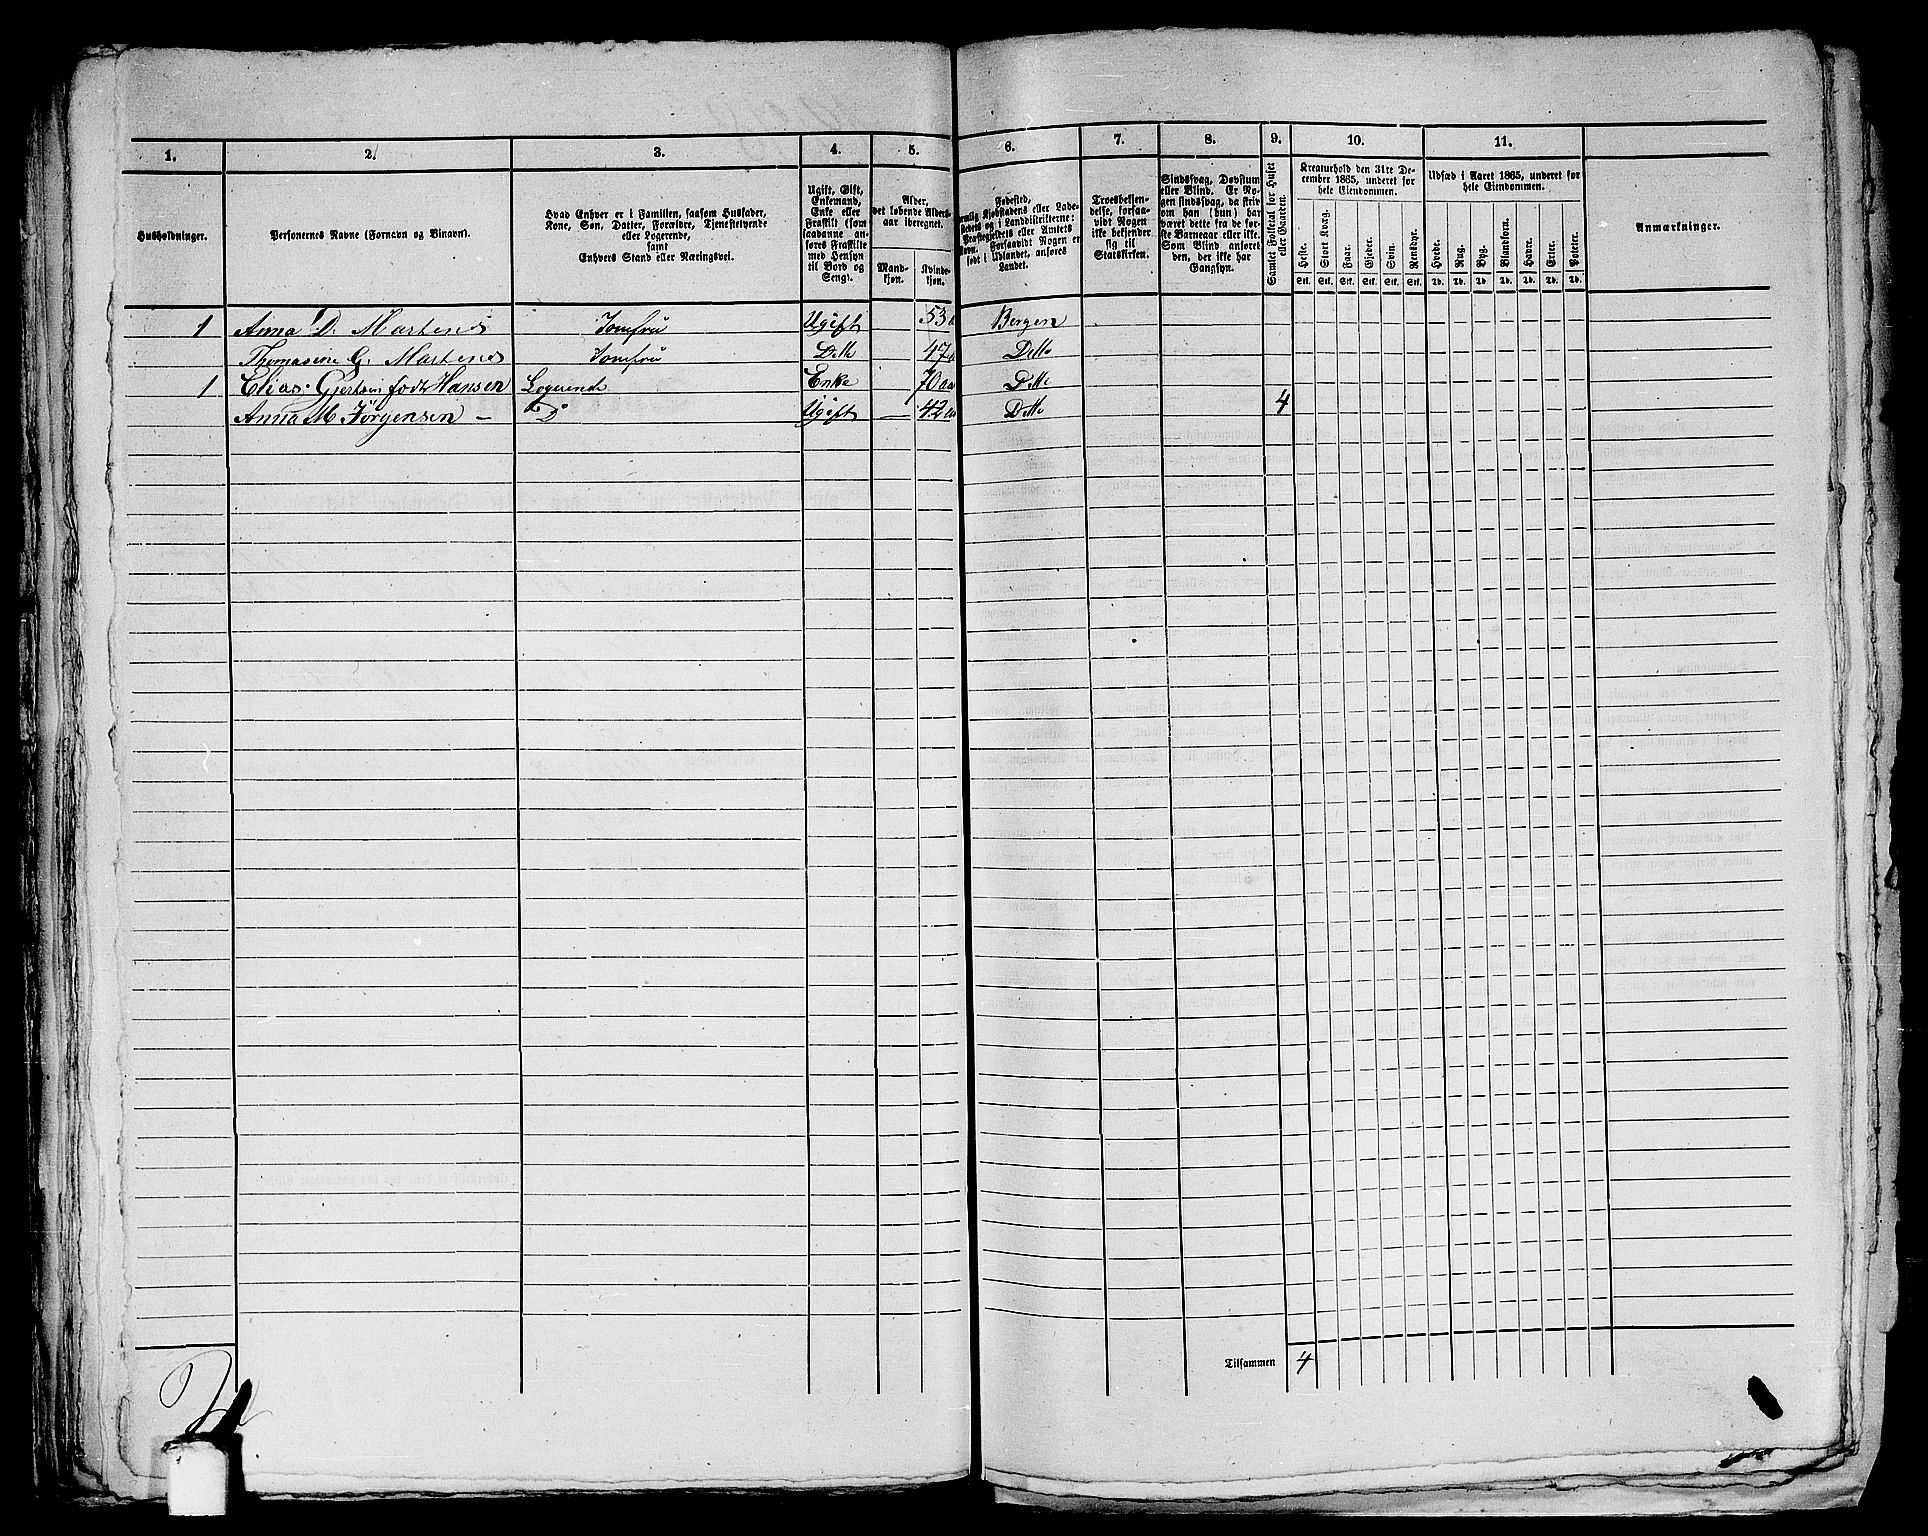 1. 2. 3. 4. 5. 6. 7. 8. 9. 10. 11.
Husholdninger.
Personernes Navne (Fornavn og Binavn).
Hvad Enhver er i Familien, saasom Husfader,
Kone, Søn, Datter, Forældre, Tjenestetyende
eller Logerende,
samt
Enhvers Stand eller Næringsvei.
Ugift, Gift,
Enkemand,
Enke eller
Fraskilt (som
saadanne an-
føres Fraskilte
med Hensyn
til Bord og
Seng).
Alder,
det løbende Alders-
aar iberegnet.
Mand-
kjøn.
Kvinde-
kjøn.
Fødested,
Kjøbstadens eller Lade-
stedets og i Landdistrikterne:
Præstegjeldets eller Amtets
Navn. Forsaavidt Nogen er
født i Udlandet, anføres
Landet.
Troesbekjen-
delse, forsaa-
vidt Nogen
ikke bekjender
sig til
Statskirken.
Sindssvag, Døvstum
eller Blind. Er No-
gen sindssvag, da skriv
om han (hun) har
været dette fra de før-
ste Barneaar eller ikke.
Som Blind anføres
den, der ikke har
Gangsyn.
Samlet Folketal for Huset
eller Gaarden.
Kreaturhold den 31te De-
cember 1865, underet for
hele Eiendommen.
Heste. Stort Kvæg. Faar. Gjeder. Svin. Rensdyr.
Stk. Stk. Stk. Stk. Stk. Stk.
Udsæd i Aaret 1865, underet for
hele Eiendommen.
Hvede. Rug. Byg. Blandkorn. Havre. Erter. Poteter.
Td. Td. Td. Td. Td. Td. Td.
Anmærkninger.
1 Anna D. Martens Jomfru Ugift 53 Bergen
Thomasine G. Martens Jomfru Ditto 47 Ditto
1 Elias Gjertsen født Hansen Logerende Enke 70 Ditto
Anna M Jørgensen — D Ugift — 42 Ditto 4
Tilsammen 4